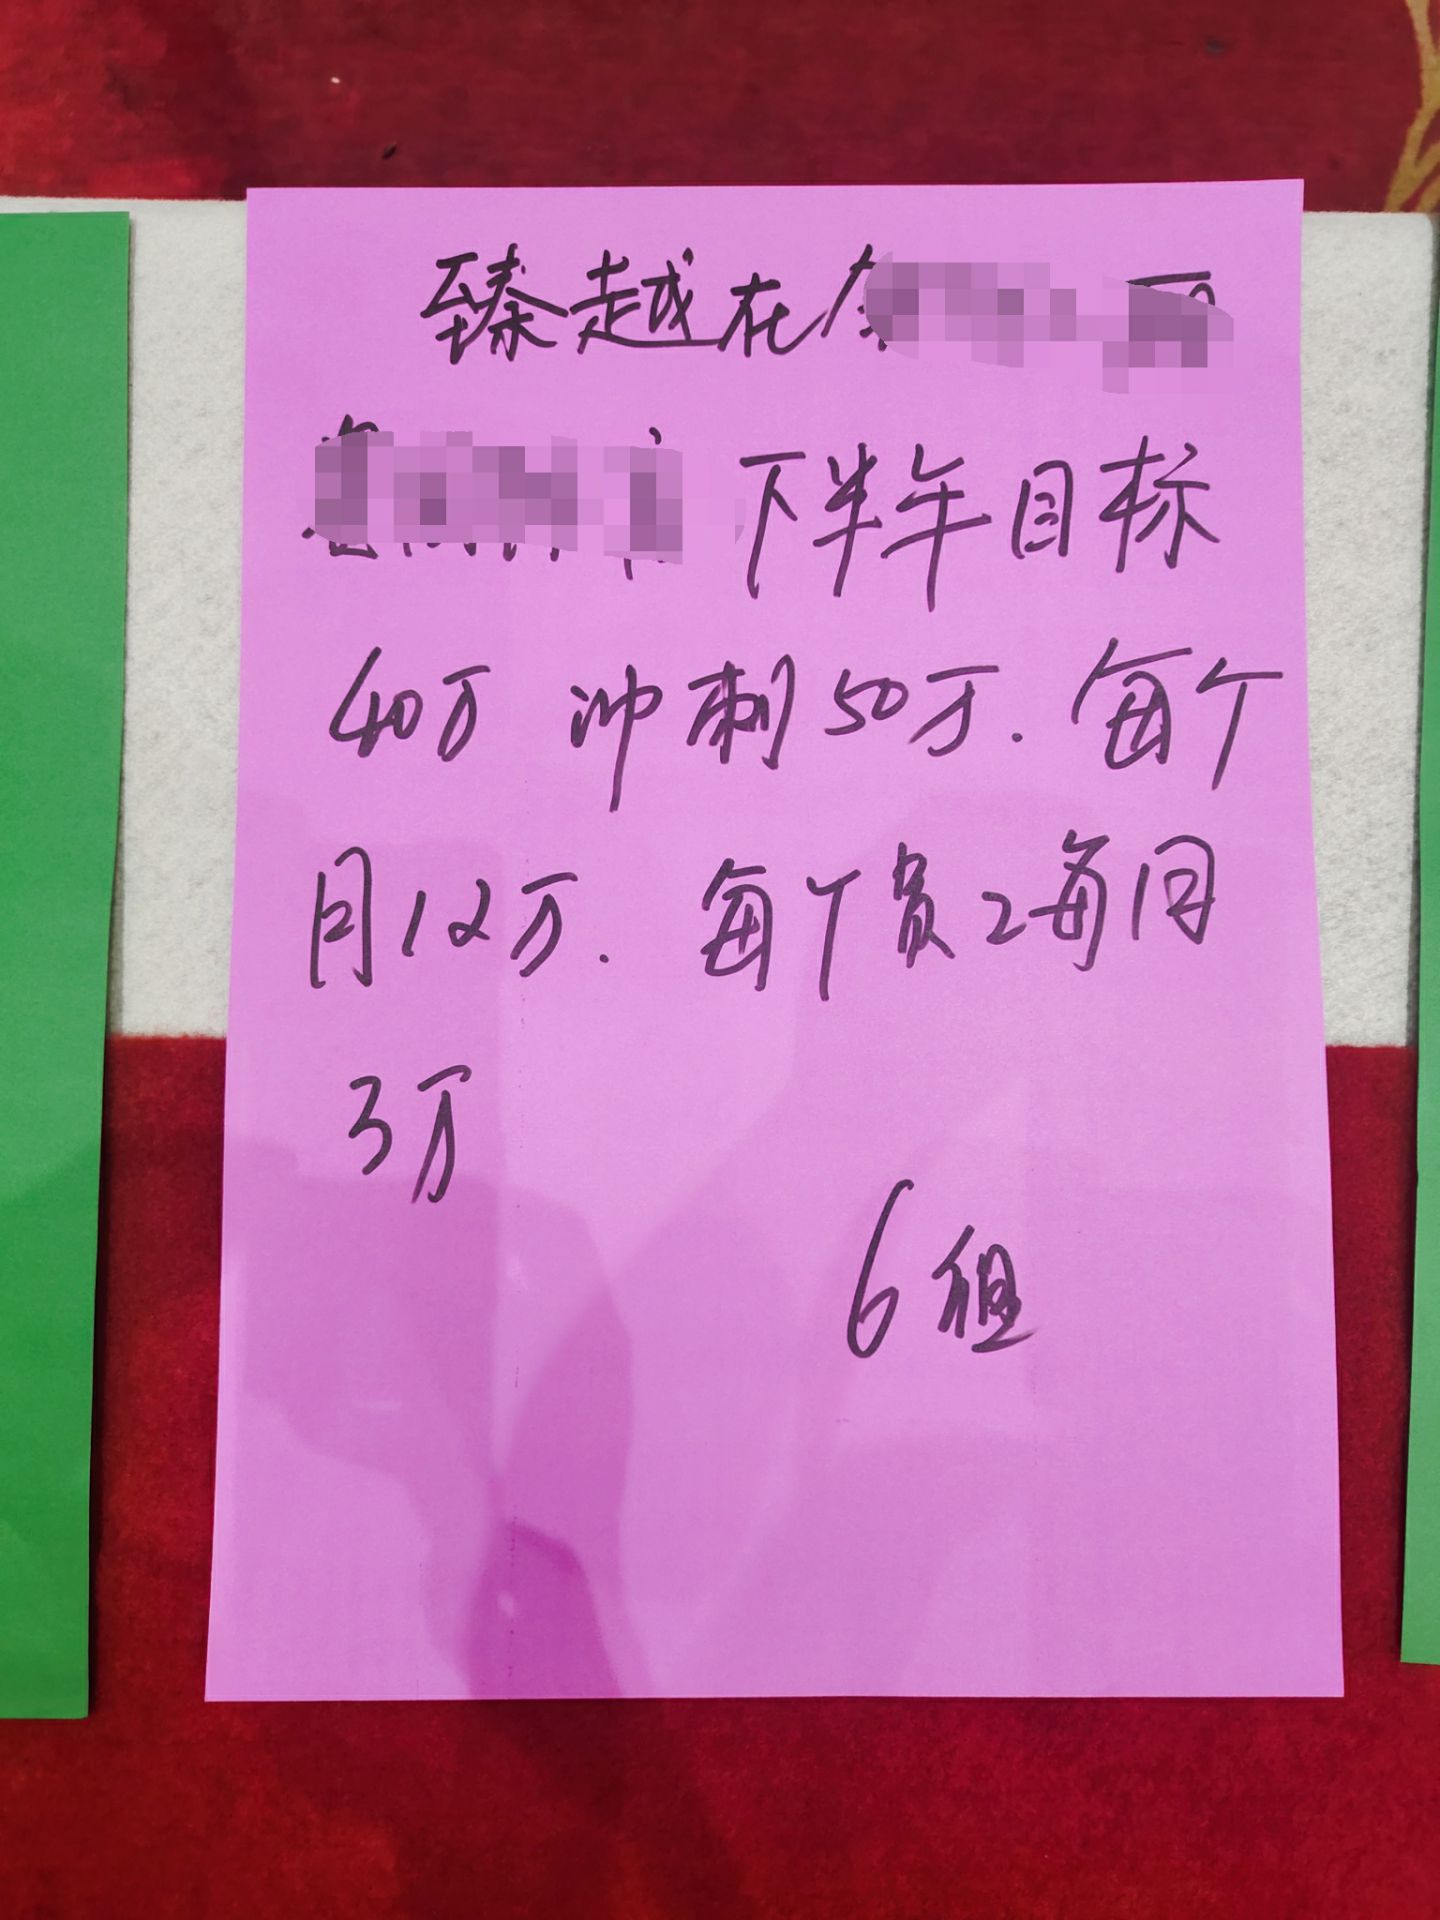 臻越在
下半年目标
40万 冲刺50万.每个
月12万.每个员工每周
3万
6组